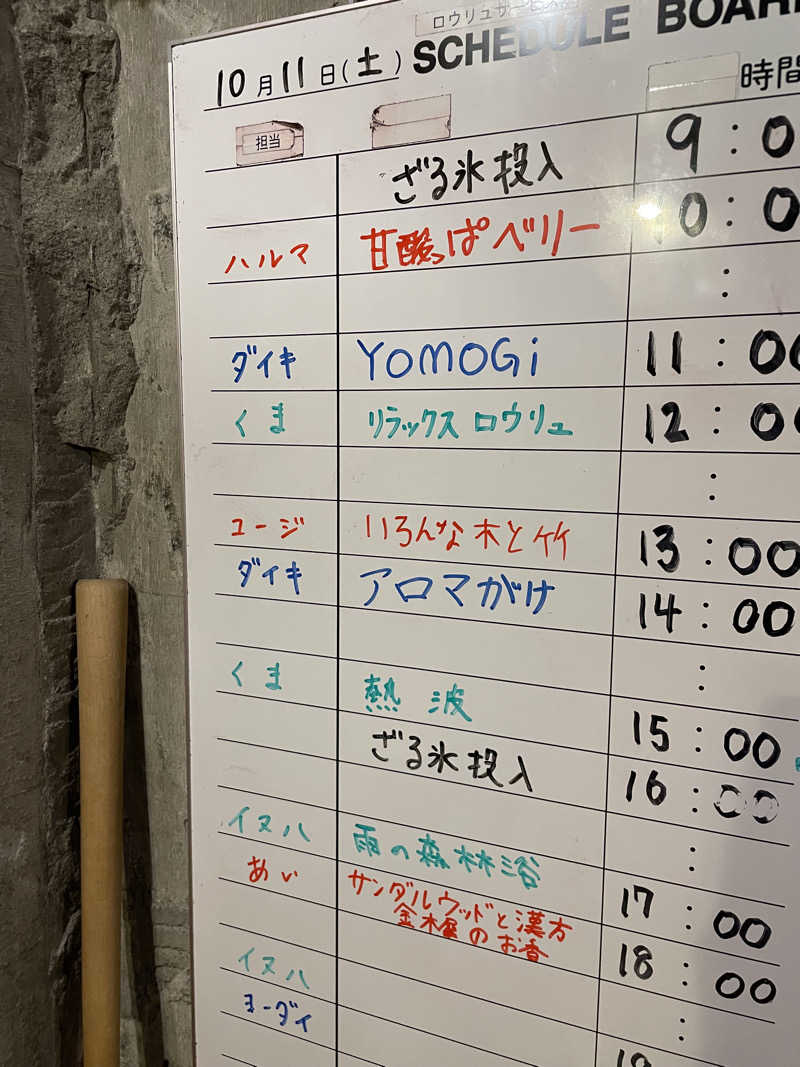 ロウリュサービス
SCHEDULE BOAR
10月11日(土)
時間
担当
ざる氷投入 9:0
ハルマ 甘酸っぱベリー 10:0
:
ダイキ YOMOGi 11:00
くま リラックスロウリュ 12:00
:
ユージ いろんな木と竹 13:00
ダイキ アロマがけ 14:00
:
くま 熱波 15:00
ざる氷投入 16:00
:
イヌハ 雨の森林浴 17:00
あい サンダルウッドと漢方 18:00
金木犀のお香
:
イヌハ
ヨーダイ
19